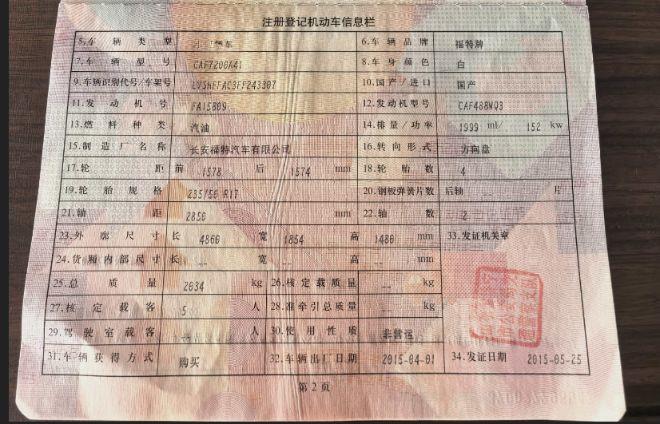 注册登记机动车信息栏
5.车辆类型 轿车 6.车辆品牌 福特牌
7.车辆型号 CAF7200A41 8.车身颜色 白
9.车辆识别代号/车架号 10.国产/进口 国产
11.发动机号 FA15809 12.发动机型号 CAF488WQ3
13.燃料种类 汽油 14.排量/功率 1999 ml/ 152 kw
15.制造厂名称 长安福特汽车有限公司 16.转向形式 方向盘
17.轮距 前 1578 后 1574 mm 18.轮胎数 4
19.轮胎规格 235/50 R17 20.钢板弹簧片数 后轴 片
21.轴距 2850 mm 22.轴数 2
23.外廓尺寸 长 4860 宽 1854 高 1480 mm 33.发证机关章
24.货厢内部尺寸 长 -- 宽 -- 高 -- mm
25.总质量 2034 kg 26.核定载质量 -- kg
27.核定载客 5 人 28.准牵引总质量 -- kg
29.驾驶室载客 -- 人 30.使用性质 非营运
31.车辆获得方式 购买 32.车辆出厂日期 2015-04-01 34.发证日期 2015-05-25
第2页